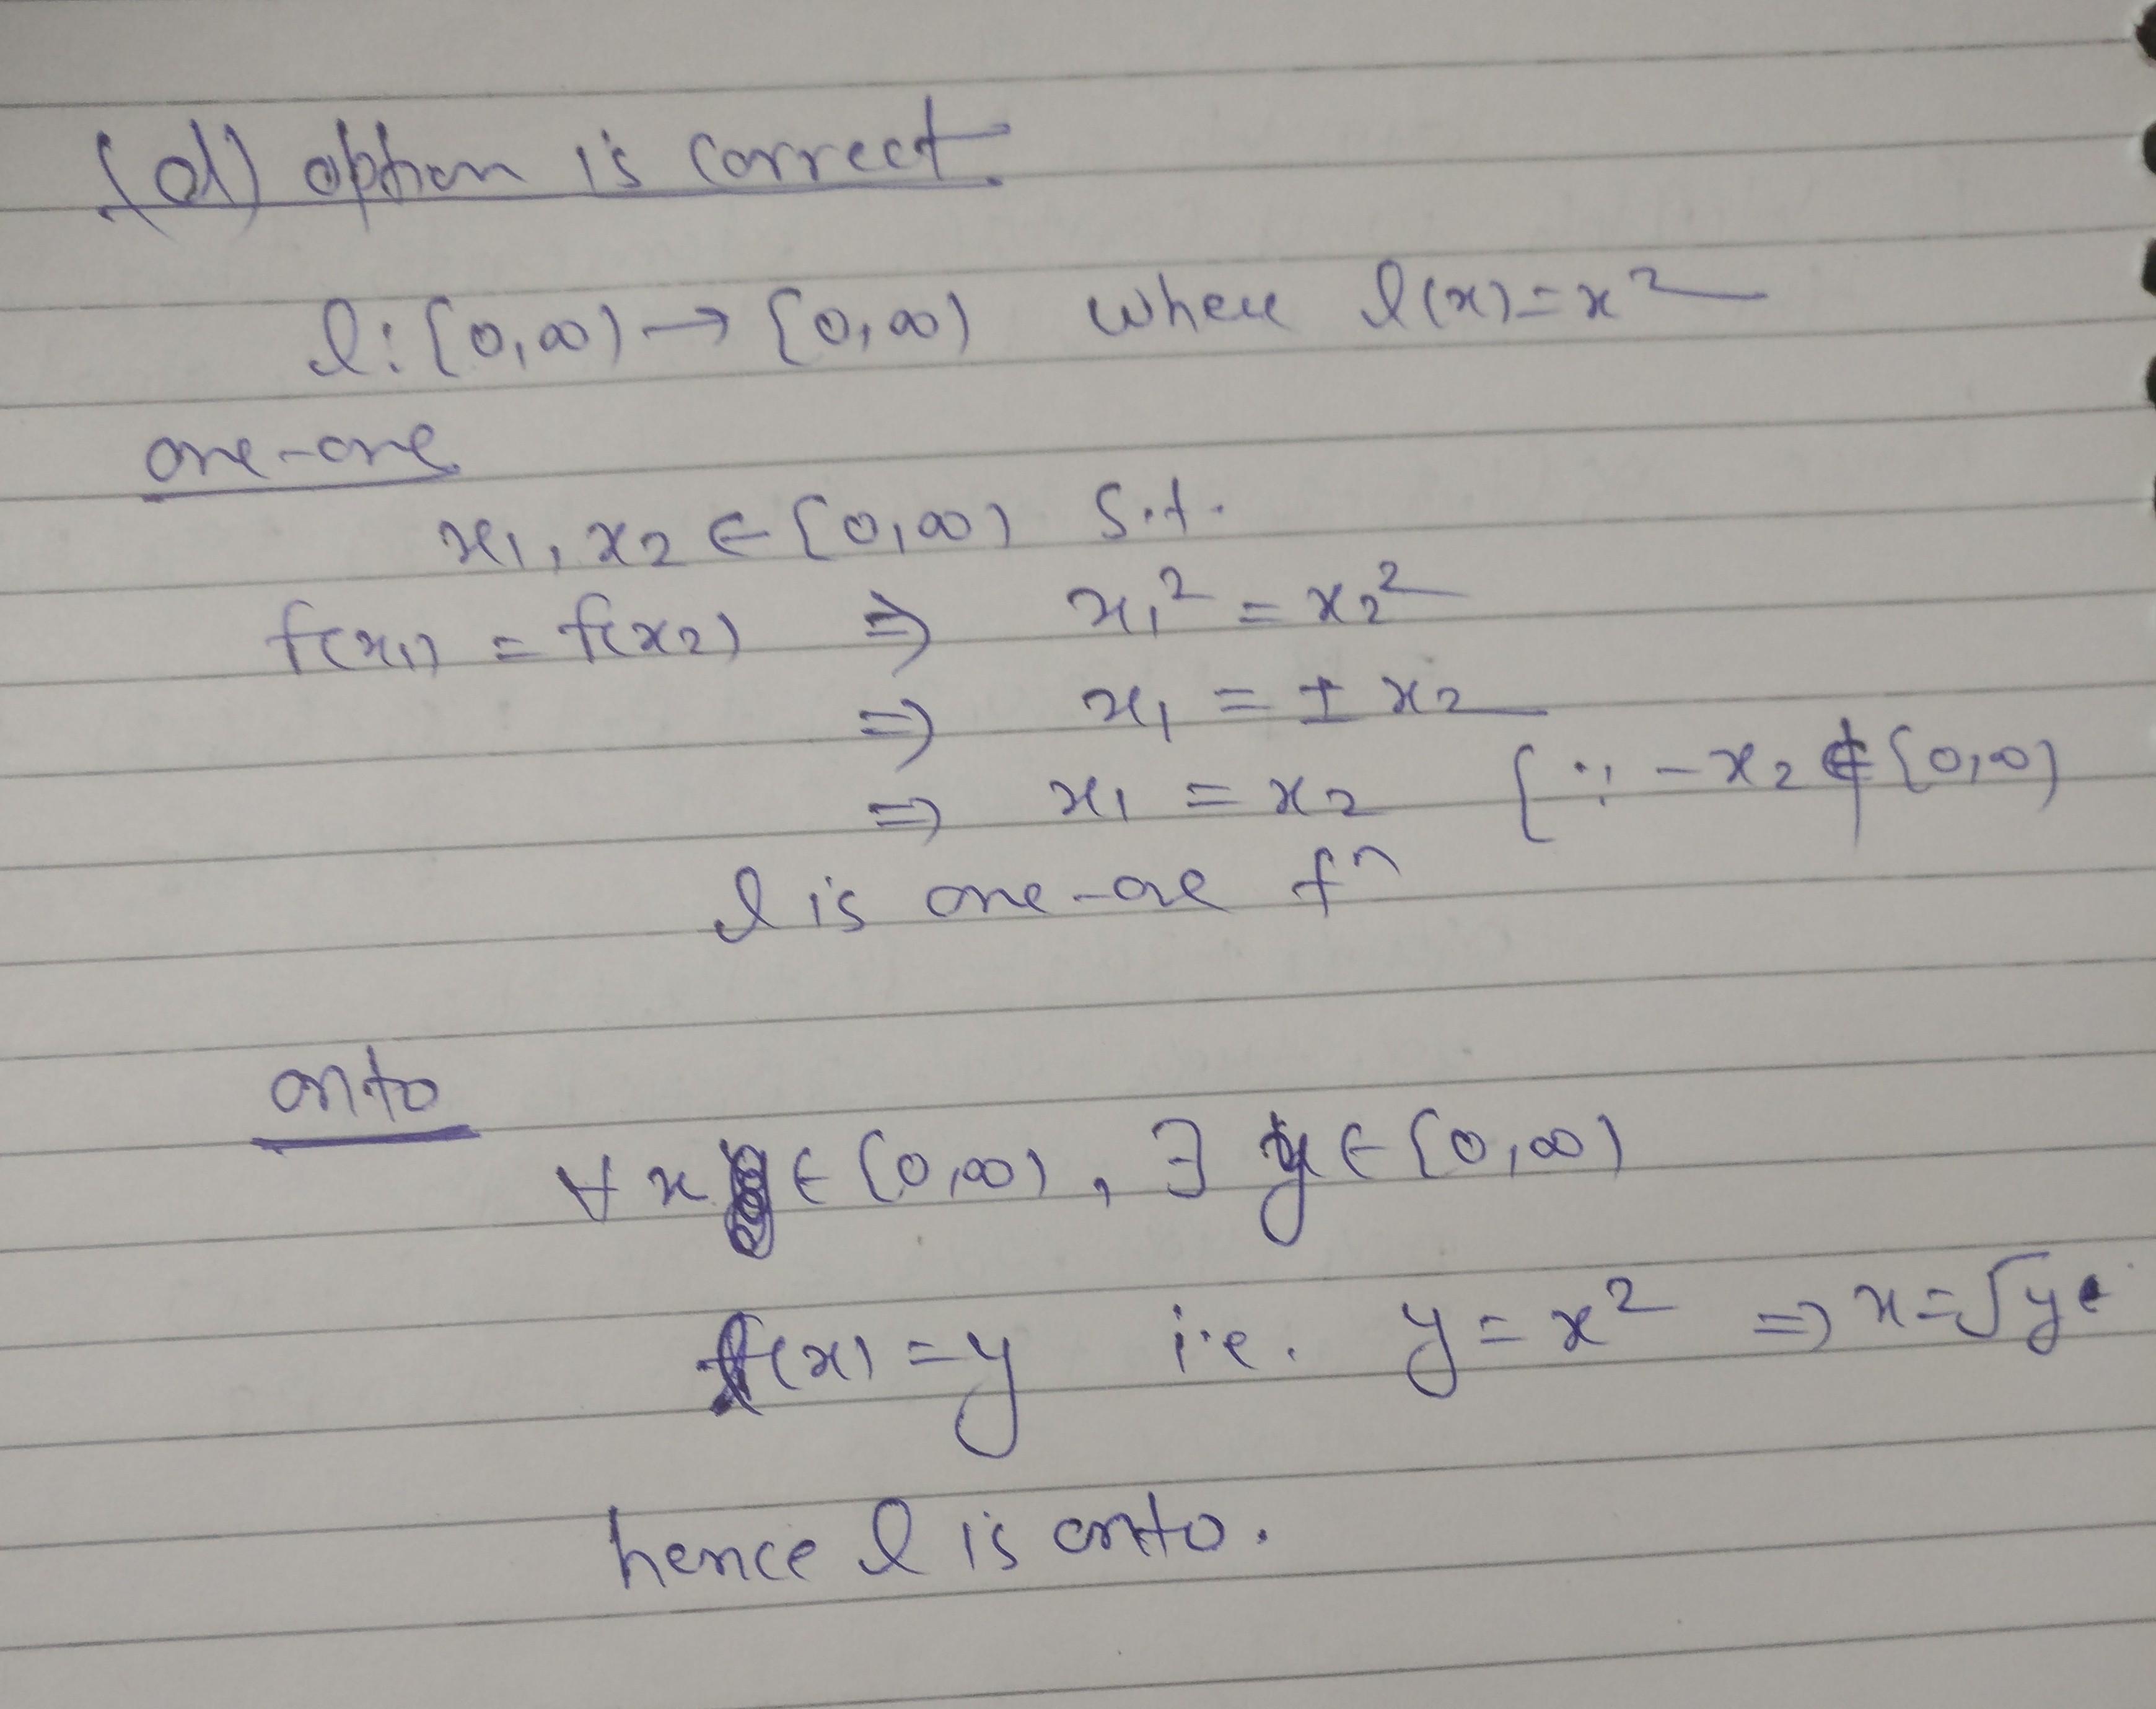 (d) option is correct.
l: [0,∞) → [0,∞) where l(x) = x²
one-one
x₁, x₂ ∈ [0,∞) S.t.
f(x₁) = f(x₂) ⇒ x₁² = x₂²
⇒ x₁ = ± x₂
⇒ x₁ = x₂ {∵ -x₂ ∉ [0,∞)
l is one-one fⁿ
onto
∀ x ∈ [0,∞), ∃ y ∈ [0,∞)
f(x) = y i.e. y = x² ⇒ x = √y
hence l is onto.